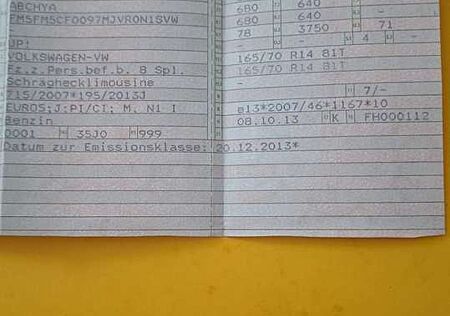 ABCHYA
FM5FM5CF0097MJVR0N1SVW
JP!
VOLKSWAGEN-VW
Fz.z.Pers.bef.b. 8 Spl.
Schräghecklimousine
715/2007*195/2013J
EURO5;J;PI/CI; M, N1 I
Benzin
0001 35J0 999
Datum zur Emissionsklasse: 20.12.2013*
680 640 -
680 640 -
78 3750 71
- 4 -
165/70 R14 81T
165/70 R14 81T
7/-
e13*2007/46*1167*10
08.10.13 K FH000112